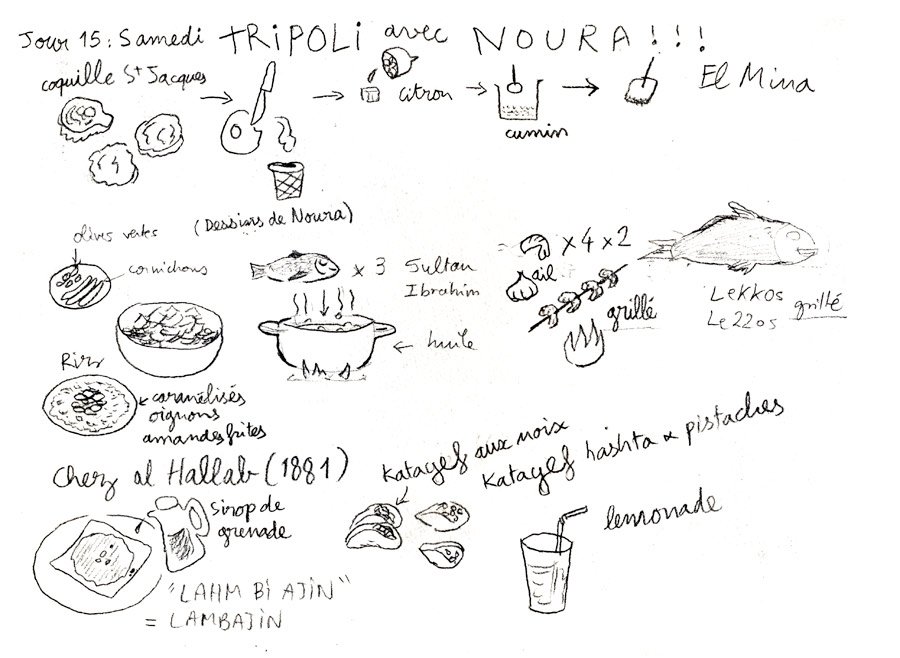 Jour 15 : Samedi TRIPOLI avec NOURA!!!
coquille St Jacques
citron
cumin
El Mina
(Dessins de Noura)
olives vertes
cornichons
x 3 Sultan
Ibrahim
huile
= x 4 x 2
ail
grillé
Lekkos
Le22os grillé
Riz
caramélisés
oignons
amandes frites
Chez al Hallab (1881)
sirop de
grenade
"LAHM BI AJIN"
= LAMBAJIN
Katayef aux noix
Katayef hashta & pistaches
lemonade